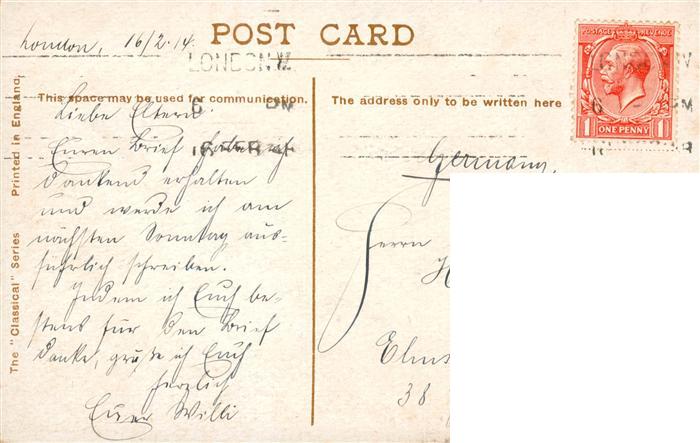 London, 16/2.14.
POST CARD
LONDON.W.
6 PM
This space may be used for communication.
The address only to be written here
POSTAGE REVENUE
1 ONE PENNY 1
Liebe Eltern!
Euren Brief habe ich
dankend erhalten
und werde ich am
nächsten Sonntag aus-
führlich schreiben.
Indem ich Euch be-
stens für den Brief
danke, grüße ich Euch
herzlich
Euer Willi
Germany.
Herrn
38
The "Classical" Series Printed in England.